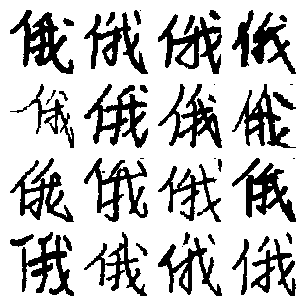 俄俄俄俄
俄俄俄俄
俄俄俄俄
俄俄俄俄